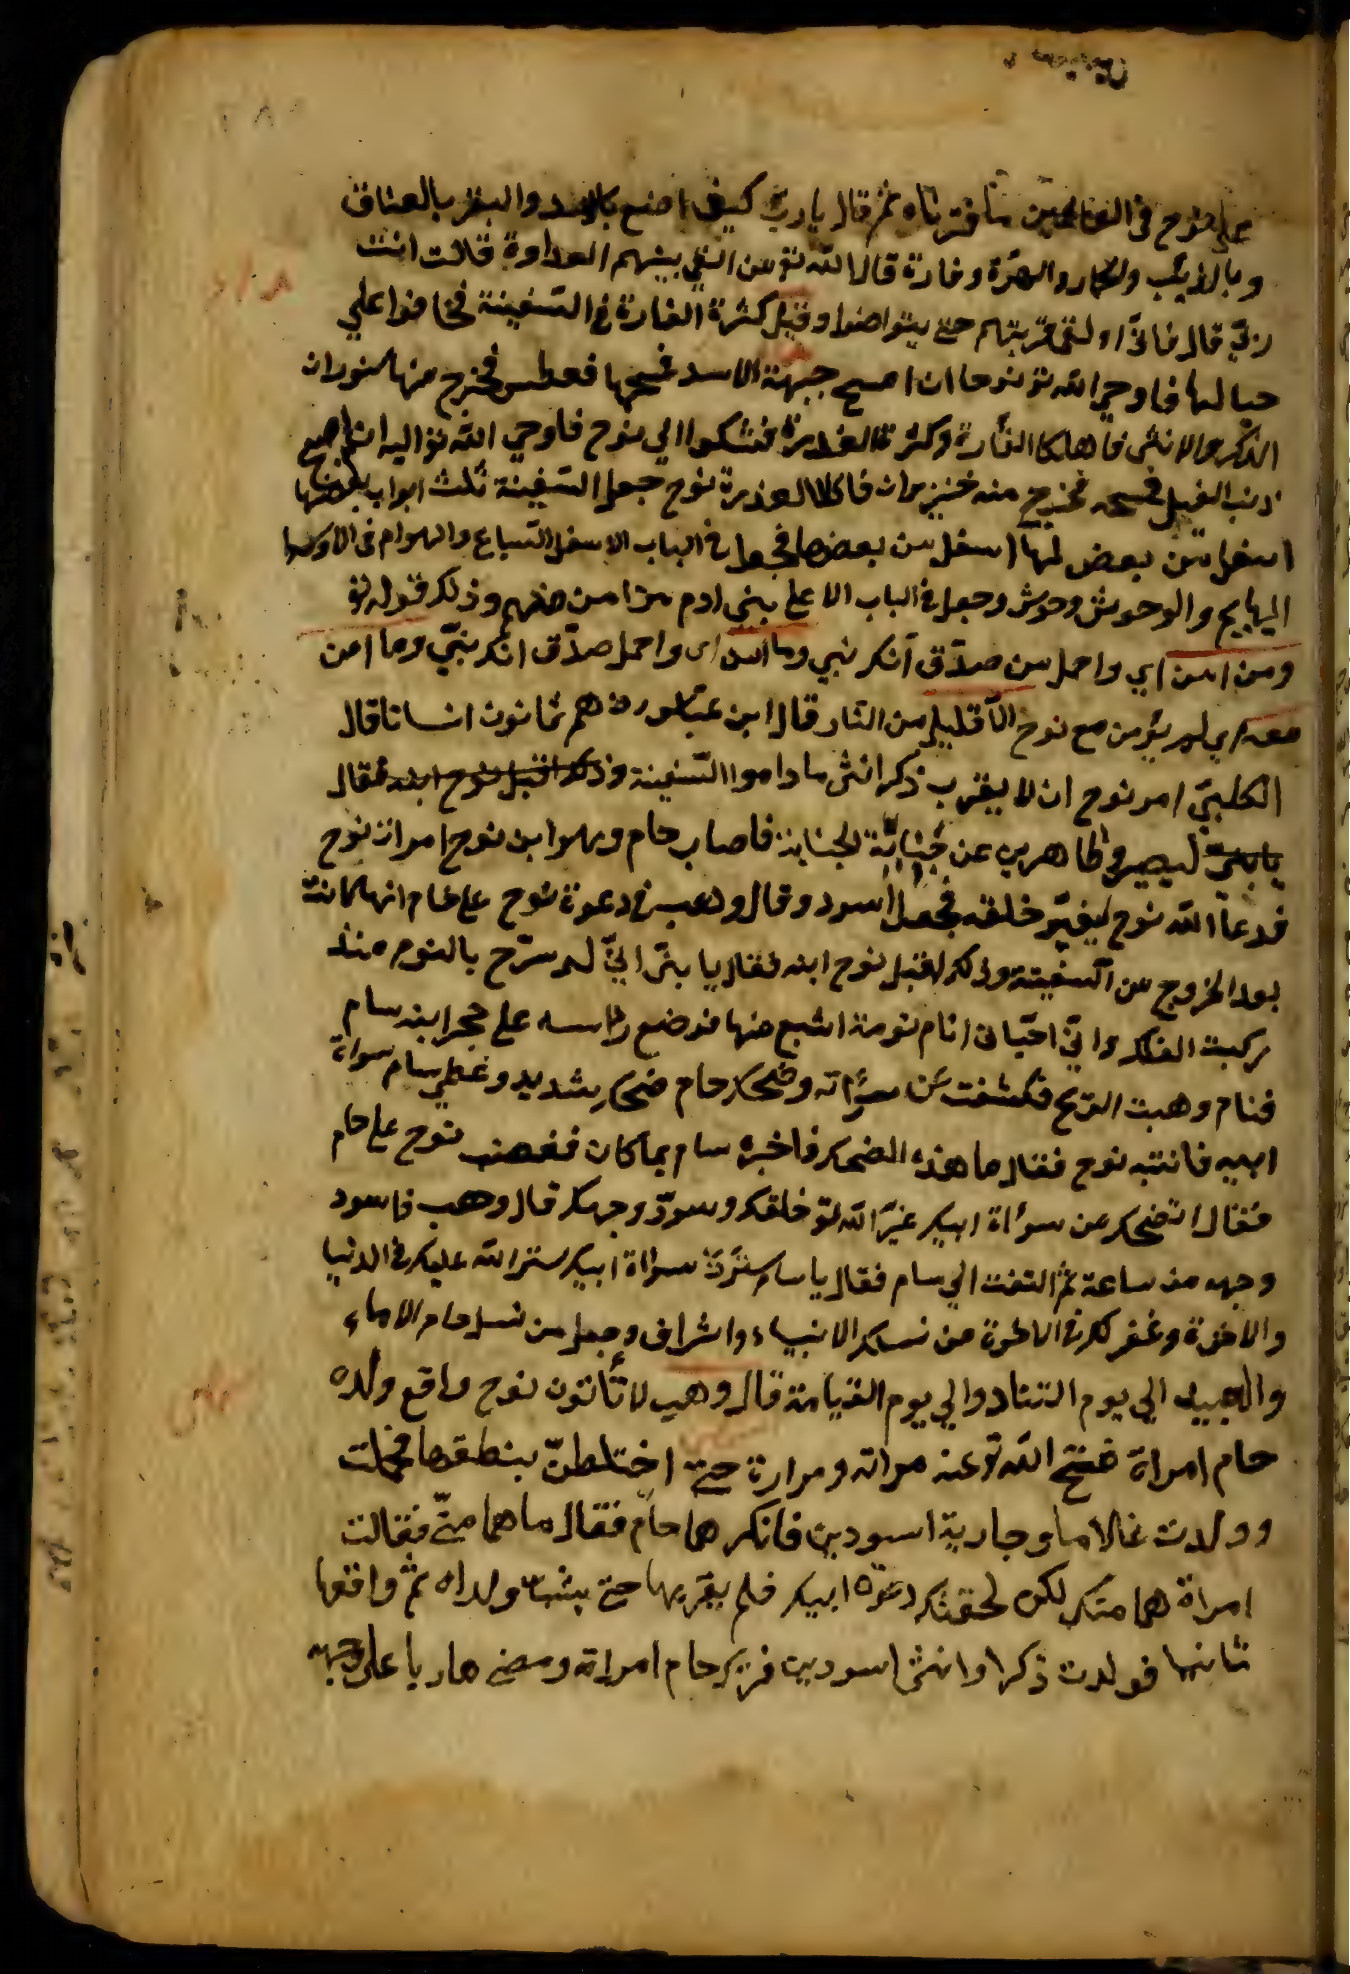 على نوح في العالمين ما قربناه ثم قال يا رب كيف اصنع بالاسد والبقر بالعناق
وبالذيب والحمار والهرة وفارة قال الله تو من القي بينهم العداوة قالت انت
ربي قال فاني اولف قربتهم حتى يتواضوا وقيل كثرة الفارة في السفينة فخافوا علي
حبالها فاوحي الله تو نوحا ان امسح جبهة الاسد فمسحها فعطس فخرج منها سنوران
الذكر والانثى فاهلكا الفأرة وكثرة العذرة فشكوا الي نوح فاوحي الله تو اليه ان امسح
ذنب الفيل فمسحه فخرج منه خنزيران فاكلا العذرة نوح جعل السفينة ثلث ابواب بعضها
اسفل من بعض لها اسفل من بعضها فجعل في الباب الاسفل السباع والهوام في الاوسط
البهايم والوحوش وحوش وجعل في الباب الاعلي بني ادم من امن منهم وذلك قوله تو
ومن امن اي واحمل من صدق انك نبي وما امن اى واحمل صدق انك نبي وما امن
معه اي لم يؤمن مع نوح الا قليل من النار قال ابن عباس رض هم ثمانون انسانا قال
الكلبي امر نوح ان لا يقرب ذكر انثى ما داموا السفينة وذلك اقبل نوح ابنه فقال
يابني ليصيروا طاهرين عن جنابة لجنابة فاصاب حام وهوا بن نوح امرات نوح
فدعا الله نوح ليغير خلقه فجعل اسود وقال وهب في دعوة نوح على حام انها كانت
بعد الخروج من السفينة وذلك اقبل نوح ابنه فقال يا بني اني لم استرح بالنوم منذ
ركبت الفلك واني احب ان انام نومة اشبع منها فوضع راسه على حجر ابنه سام
فنام وهبت الريح فكشفت عن سوأته وضحك حام ضحك شديد وغطي سام سواة
ابيه فانتبه نوح فقال ما هذه الضحك فاخبره سام بما كان فغضب نوح على حام
فقال اتضحك من سوأة ابيك غير الله تو خلقك وسود وجهك قال وهب فاسود
وجهه من ساعة ثم التفت الي سام فقال يا سام سترت سوأة ابيك ستر الله عليك في الدنيا
والاخرة وغفر لك في الاخرة من نسلك الانبياء واشراف وجعل من نسل حام الاماء
والعبيد الي يوم التناد والي يوم القيامة قال وهب لا تأتون نوح واقع ولده
حام امراة ففتح الله تو عنه مراته ومرارة حتى اختلطن بنطفها فحملت
وولدت غلاما وجارية اسودين فانكرهما حام فقال ما هما مني فقالت
امراة هما منك لكن لحقتك دعوة ابيك فلم يقربها حتى يشب ولداه ثم واقعها
ثانيها فولدت ذكرا وانثى اسودين فترك حام امراة ومضى هاربا على وجهه